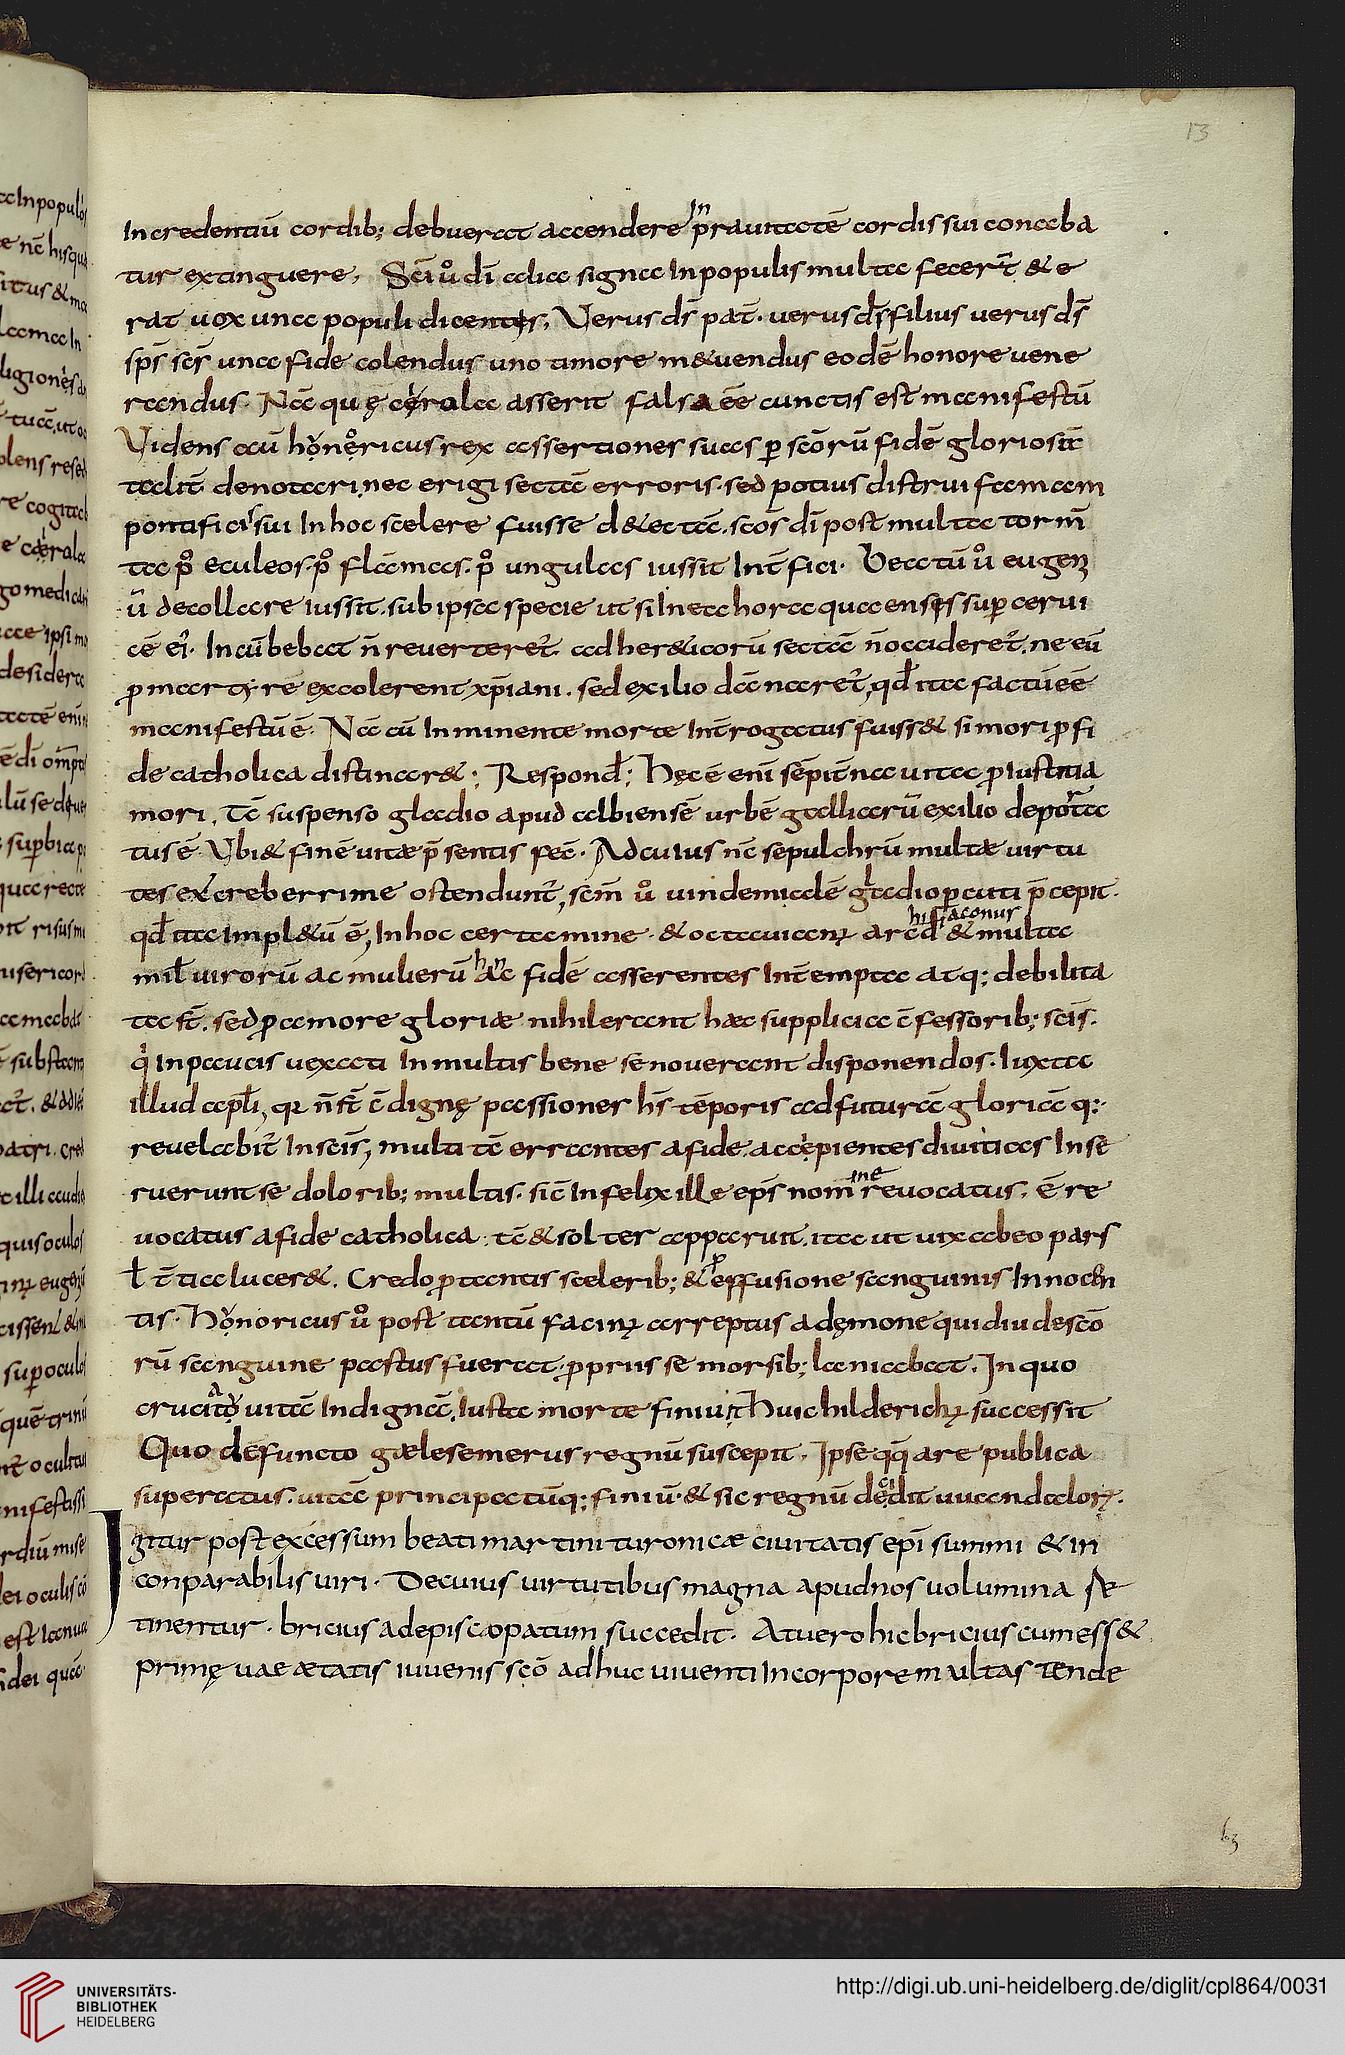 13
Incredentiū cordib; debuerat accendere In prauitatē cordis sui conaba
tur extinguere. Sci ů dī alia signa In populis multa fecer̄t & e
rat uox una populi dicentes, Verus ds̄ pat̄. uerus ds̄ filius uerus ds̄
sps̄ scs̄ una fide colendus uno timore m&uendus eodē honore uene
randus. Nā quę cyrola asserit falsa eē cunctis est manifestū
Videns aū honoricus rex assertiones suas p scōrū fidē gloriosit̄
taliť denotari, nec erigi sectā erroris. sed potius distrui famam
pontificis sui In hoc scelere fuisse d&ectā. scos̄ dī post multa torm̄
ta po eculeos. po flāmas. po ungulas iussit Int̄fici. Veatū ů eugen
ū decollare iussit. sub ipsa specie ut si In ea hora qua ensis sup cerui
cē ei. Incūbebat n̄ reuerteret̄. ad her&icorū sectā n̄ occideret̄. ne eū
p martyrē excolerent xpiani. sed exilio dānaret̄, qd̄ ita factū eē
manifestū ē. Nā cū Inminente morte Int̄rogatus fuiss& si mori p fi
de catholica distinar&; Respond̄; Hęc ē enī sēpit̄na uita p Iustitia
mori. Tē suspenso gladio apud albiensē urbē galliarū exilio deporta
tus ē. Vbi& finē uitæ p̄sentis fec̄. Ad cuius nc̄ sepulchrū multæ uirtu
tes & creberrime ostendunt̄, scm̄ ů uindemialē gladio percuti p̄cepit.
qd̄ ita Impl&ū ē, In hoc certamine. & octauian arcd hisdiaconus & multa
mil̄ uirorū ac mulierū hanc fidē asserentes Int̄empta atq; debilita
ta st̄. sed p amore gloriæ nihil erant hæc supplicia c̄fessorib; scis̄.
q Inpaucis uexati In multis bene se nouerant disponendos. Iuxta
illud apl̄i, qr n̄ st̄ c̄dignę passiones hs̄ tēporis ad futurā gloriā q;
reuelabit̄ In scis̄, multi tē errantes a fide. accipientes diuitias Inse
ruerunt se dolorib; multis. sic̄ Infelix ille eps̄ nomine reuocatus. ē re
uocatus a fide catholica. tē & sol ter apparuit. ita ut uix ab eo pars
l̄ t̄tia lucer&. Credo p tantis scelerib; & p effusione sanguinis Innocen
tis. Honoricus ů post tantū facin arreptus a demone qui diu descō
rū sanguine pastus fuerat. p priis se morsib; laniabat. In quo
cruciato uitā Indignā, Iusta morte finiuit Huic hilderich successit
Quo defuncto gælesemerus regnū suscepit. Ipse qq are publica
superatus. uitā principatūq; finiū. & sic regnū decidit uuandalor.
Igitur post excessum beati martini turonicæ ciuitatis epī summi & in
conparabilis uiri. De cuius uirtutibus magna apud nos uolumina re
tinentur. bricius ad episcopatum succedit. At uero hic bricius cum ess&
primę uae ætatis iuuenis scō ad huc uiuenti In corpore multas tende
UNIVERSITÄTS-
BIBLIOTHEK
HEIDELBERG
http://digi.ub.uni-heidelberg.de/diglit/cpl864/0031